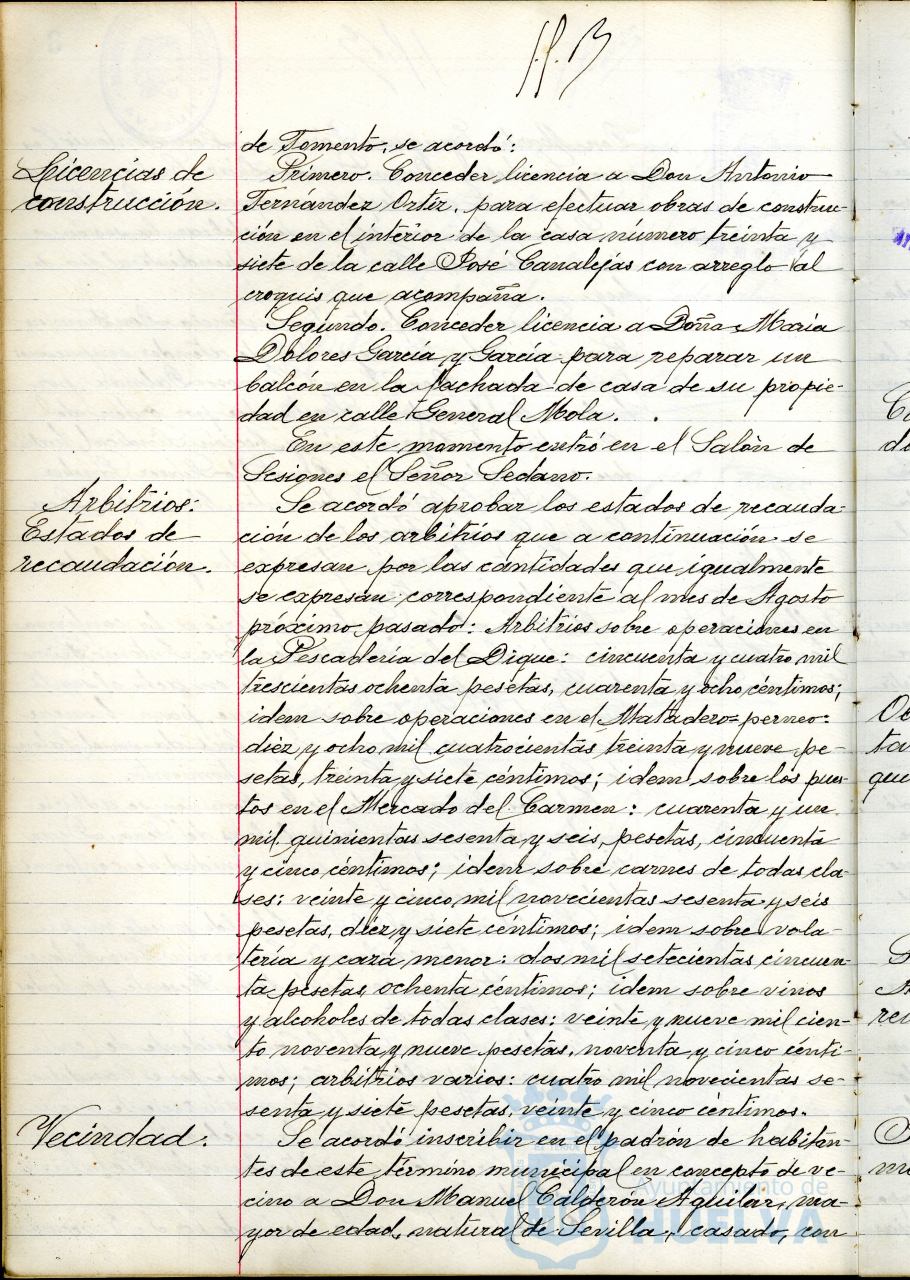 de Fomento, se acordó:
Licencias de
construcción.
Primero. Conceder licencia a Don Antonio
Fernández Ortiz, para efectuar obras de construc-
ción en el interior de la casa número treinta y
siete de la calle José Canalejas con arreglo al
croquis que acompaña.
Segundo. Conceder licencia a Doña María
Dolores García y García para reparar un
balcón en la fachada de casa de su propie-
dad en calle General Mola.
En este momento entró en el Salón de
Sesiones el Señor Sedano.
Arbitrios:
Estados de
recaudación.
Se acordó aprobar los estados de recauda-
ción de los arbitrios que a continuación se
expresan por las cantidades que igualmente
se expresan correspondiente al mes de Agosto
próximo pasado: Arbitrios sobre operaciones en
la Pescadería del Dique: cincuenta y cuatro mil
trescientas ochenta pesetas, cuarenta y ocho céntimos;
idem sobre operaciones en el Matadero=perneo:
diez y ocho mil cuatrocientas treinta y nueve pe-
setas, treinta y siete céntimos; idem sobre los pues-
tos en el Mercado del Carmen: cuarenta y un
mil quinientas sesenta y seis pesetas, cincuenta
y cinco céntimos; idem sobre carnes de todas cla-
ses: veinte y cinco mil novecientas sesenta y seis
pesetas, diez y siete céntimos; idem sobre vola-
tería y caza menor: dos mil setecientas cincuen-
ta pesetas ochenta céntimos; idem sobre vinos
y alcoholes de todas clases: veinte y nueve mil cien-
to noventa y nueve pesetas, noventa y cinco cénti-
mos; arbitrios varios: cuatro mil novecientas se-
senta y siete pesetas, veinte y cinco céntimos.
Vecindad.
Se acordó inscribir en el padrón de habitan-
tes de este término municipal en concepto de ve-
cino a Don Manuel Calderón Aguilar, ma-
yor de edad, natural de Sevilla, casado, con
Ayuntamiento de
HUELVA